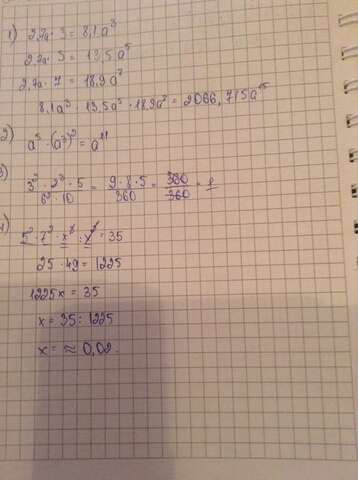 1) 2,7a · 3 = 8,1a³
2,7a · 5 = 13,5a⁵
2,7a · 7 = 18,9a⁷
8,1a³ · 13,5a⁵ · 18,9a⁷ = 2066,715a¹⁵
2) a⁵ · (a³)² = a¹¹
3) 3² · 2³ · 5 / 6² · 10 = 9 · 8 · 5 / 360 = 360 / 360 = 1
4) 5² · 7² · x⁸ : x⁷ = 35
25 · 49 = 1225
1225x = 35
x = 35 : 1225
x = ≈ 0,02.